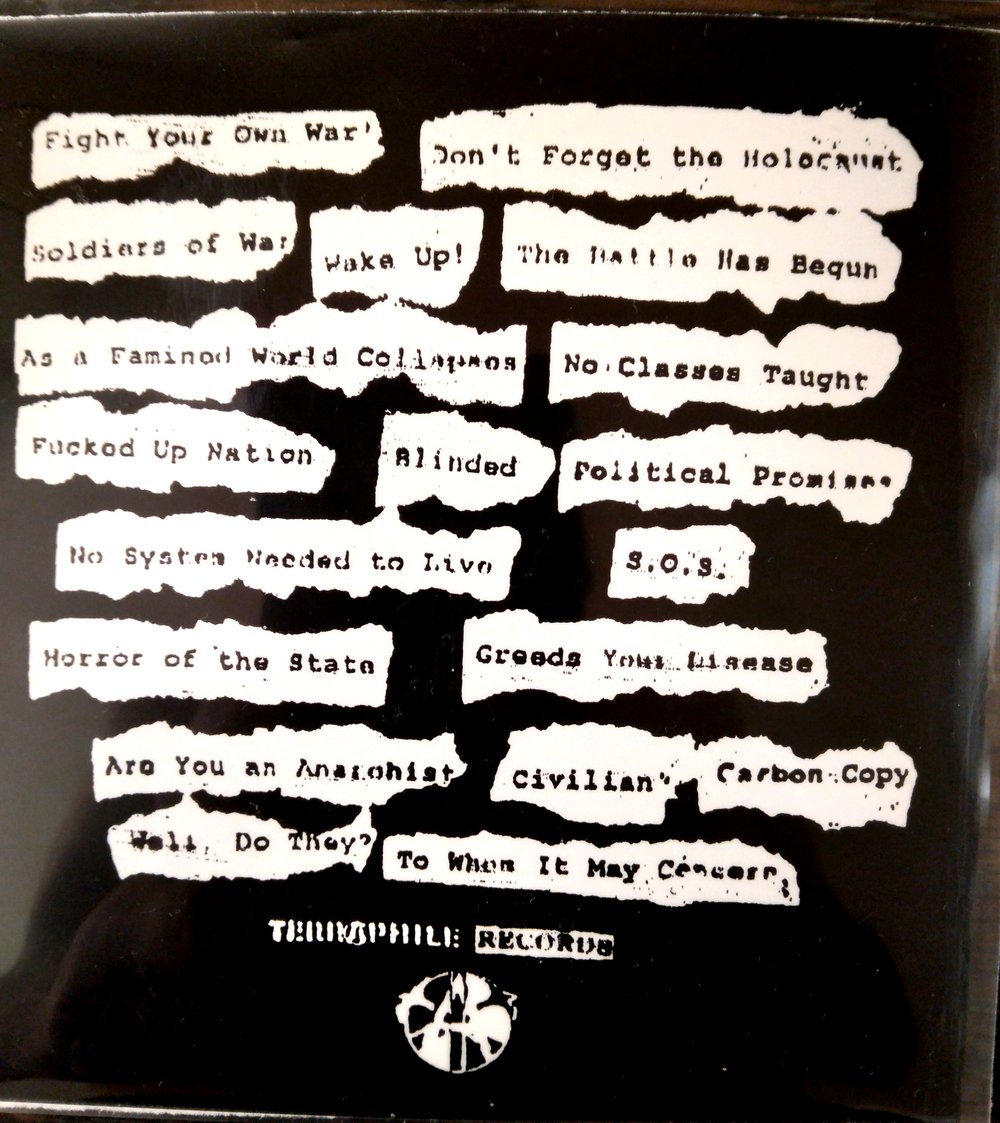 Fight Your Own War'
Don't Forget the Holocaust
Soldiers of War
Wake Up!
The Battle Has Begun
As a Famined World Collapses
No Classes Taught
Fucked Up Nation
Blinded
Political Promises
No System Needed to Live
S.O.S.
Horror of the State
Greeds Your Disease
Are You an Anarchist
Civilian'
Carbon Copy
Well, Do They?
To Whom It May Concern,
RECORDS